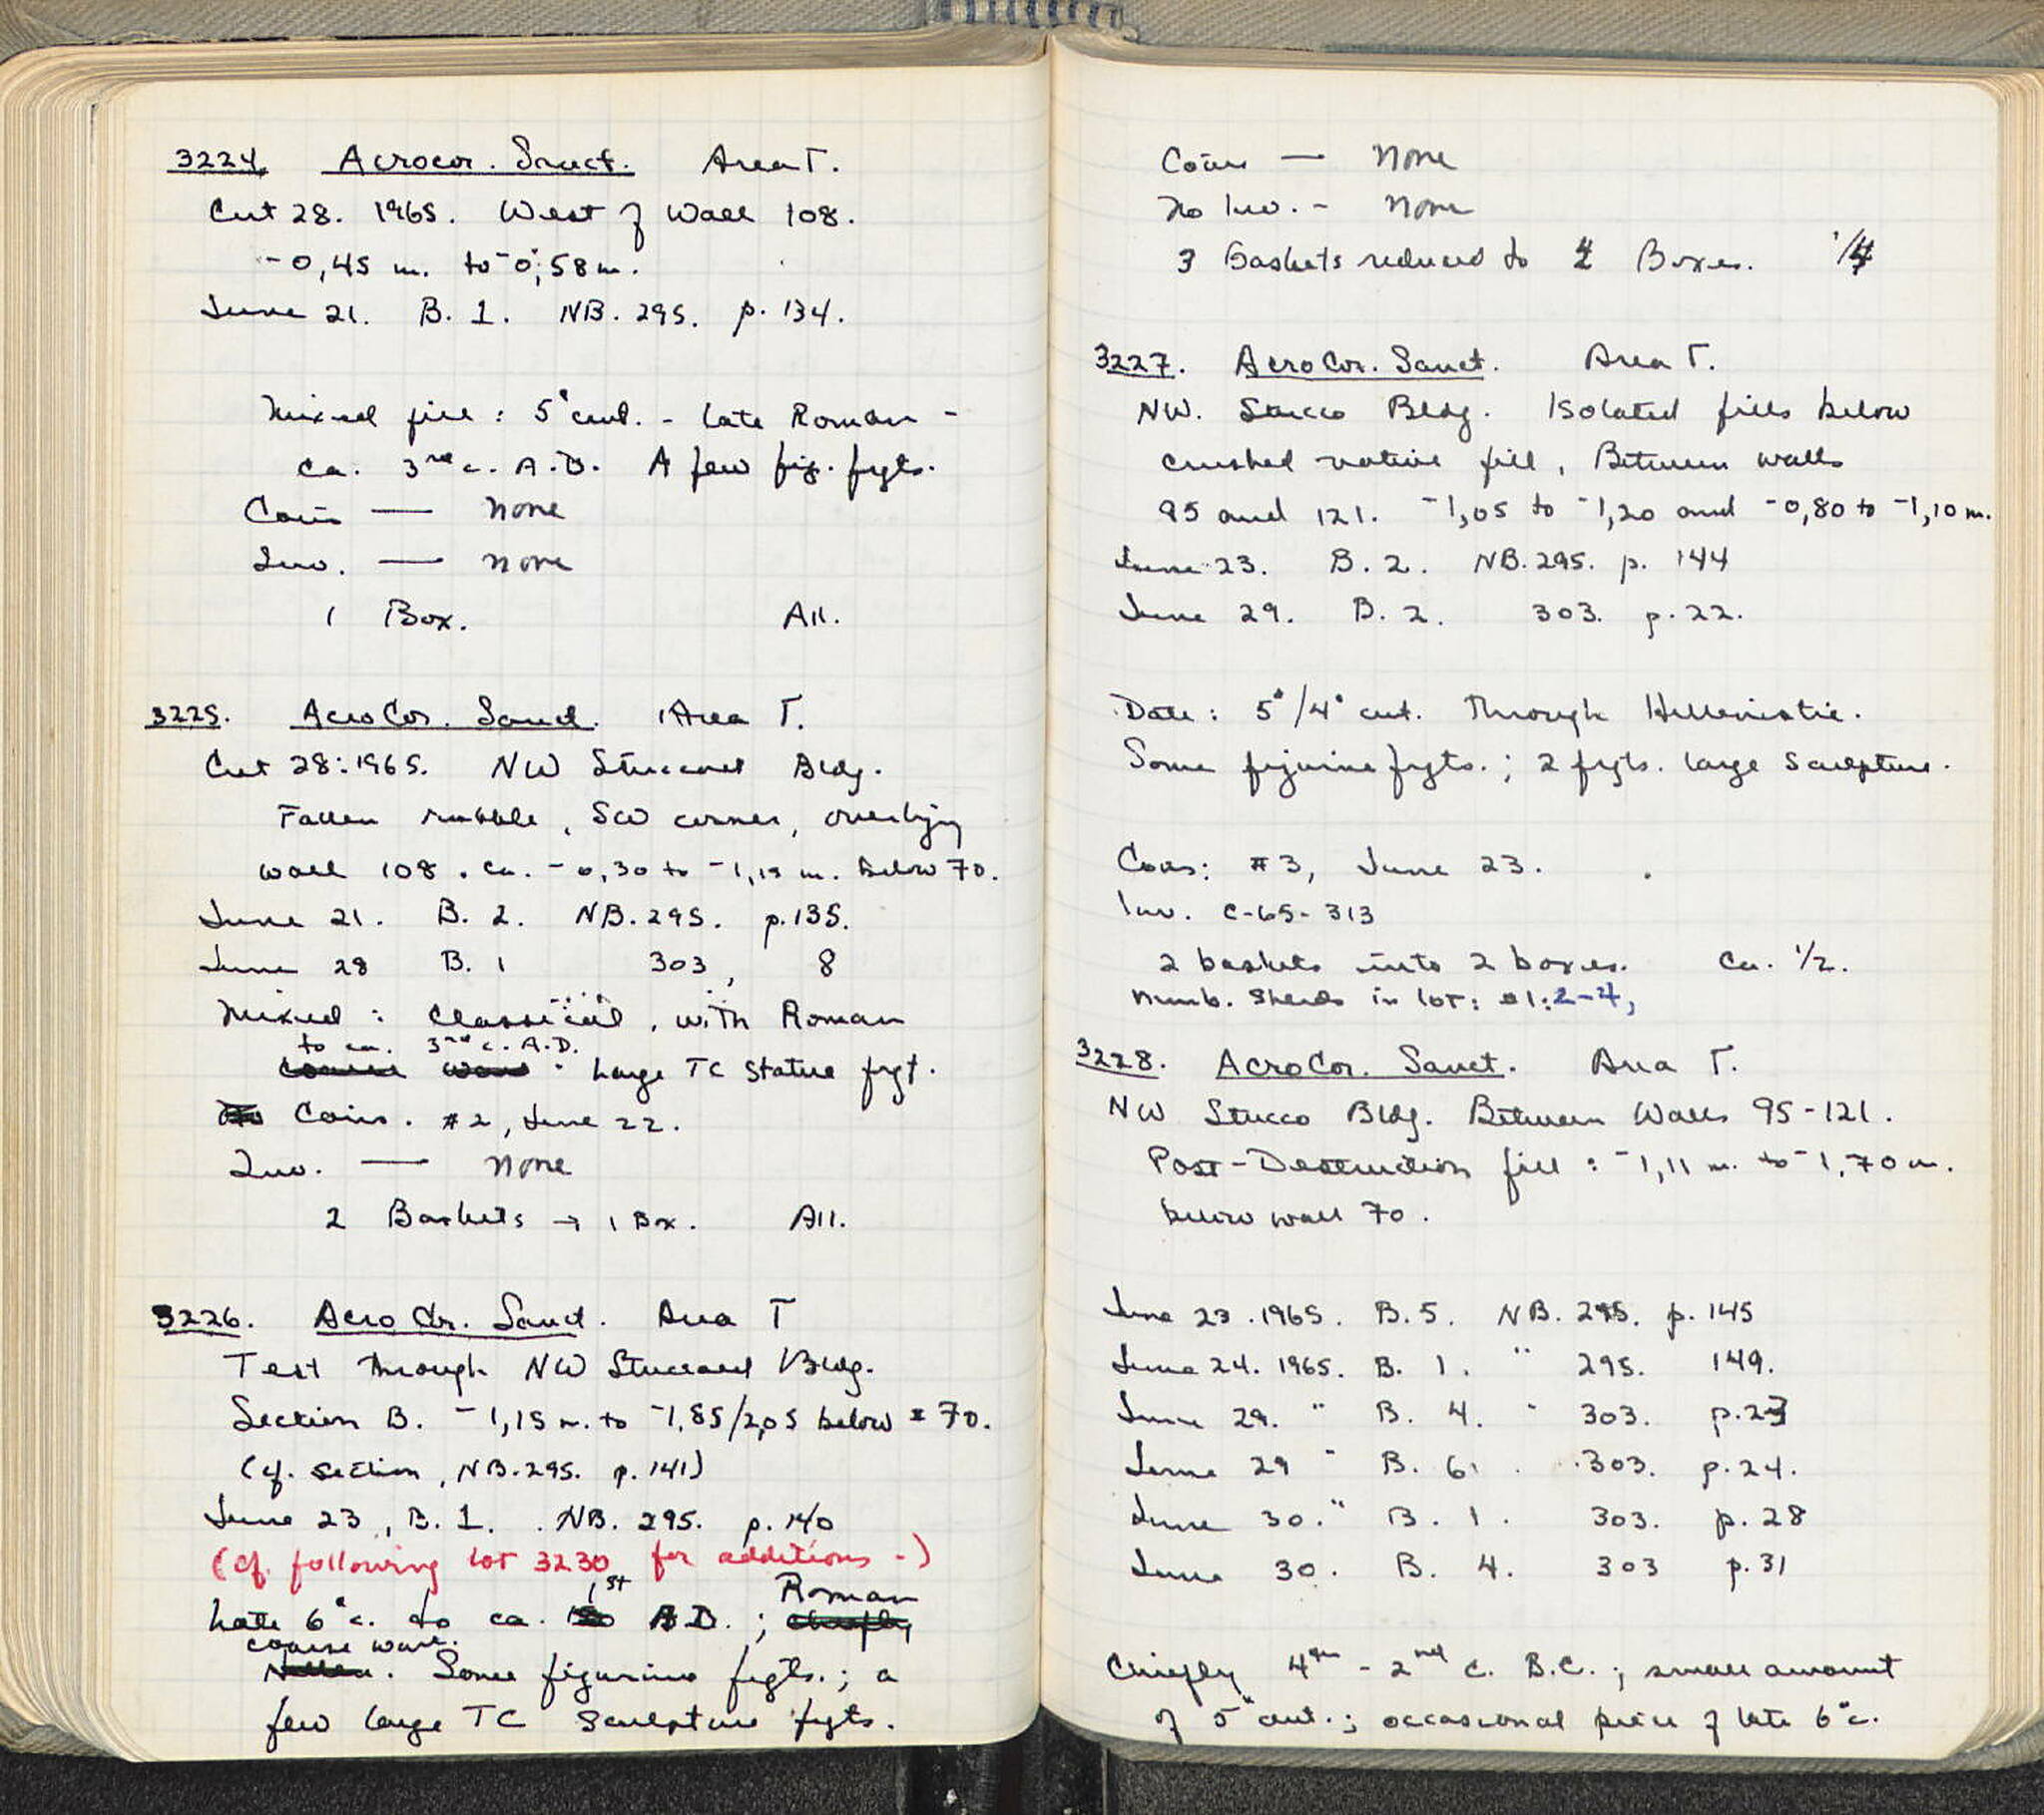 3224. Acrocor. Sanct. Area T.
Cut 28. 1965. West of Wall 108.
-0,45 m. to -0,58 m.
June 21. B. 1. NB. 295. p. 134.
Mixed fill: 5° cent. - Late Roman -
ca. 3rd c. A.D. A few fig. frgts.
Coins — none
Inv. — none
1 Box. All.
3225. AcroCor. Sanct. Area T.
Cut 28:1965. NW Stuccoed Bldg.
Fallen rubble, SW corner, overlying
wall 108. ca. -0,30 to -1,15 m. below 70.
June 21. B. 2. NB. 295. p. 135.
June 28 B. 1 303, 8
Mixed: Classical, with Roman
to ca. 3rd c. A.D.
Large TC statue frgt.
Coins. #2, June 22.
Inv. — none
2 Baskets → 1 Box. All.
3226. AcroCor. Sanct. Area T
Test Through NW Stuccoed Bldg.
Section B. -1,15 m. to -1,85/2,05 below 70.
(cf. section, NB. 295. p. 141)
June 23, B. 1. NB. 295. p. 140
(cf. following lot 3230 for additions -)
Late 6° c. to ca. 1st A.D.; Roman
coarse ware. Some figurine frgts.; a
few large TC sculpture frgts.
Coins — none
No Inv. - none
3 baskets reduced to Boxes. 1/4
3227. AcroCor. Sanct. Area T.
NW. Stucco Bldg. Isolated fills below
crushed votive fill, Between walls
95 and 121. -1,05 to -1,20 and -0,80 to -1,10 m.
June 23. B. 2. NB. 295. p. 144
June 29. B. 2. 303. p. 22.
Date: 5°/4° cent. Through Hellenistic.
Some figurine frgts.; 2 frgts. large sculpture.
Coins: #3, June 23.
Inv. C-65-313
2 baskets into 2 boxes. Ca. 1/2.
Numb. Sherds in lot: #1:2-4,
3228. AcroCor. Sanct. Area T.
NW Stucco Bldg. Between Walls 95-121.
Post-Destruction fill: -1,11 m. to -1,70 m.
below wall 70.
June 23. 1965. B. 5. NB. 295. p. 145
June 24. 1965. B. 1. " 295. 149.
June 29. " B. 4. " 303. p. 23
June 29 " B. 6. 303. p. 24.
June 30. " B. 1. 303. p. 28
June 30. B. 4. 303 p. 31
Chiefly 4th - 2nd c. B.C.; small amount
of 5° cent.; occasional piece of late 6° c.